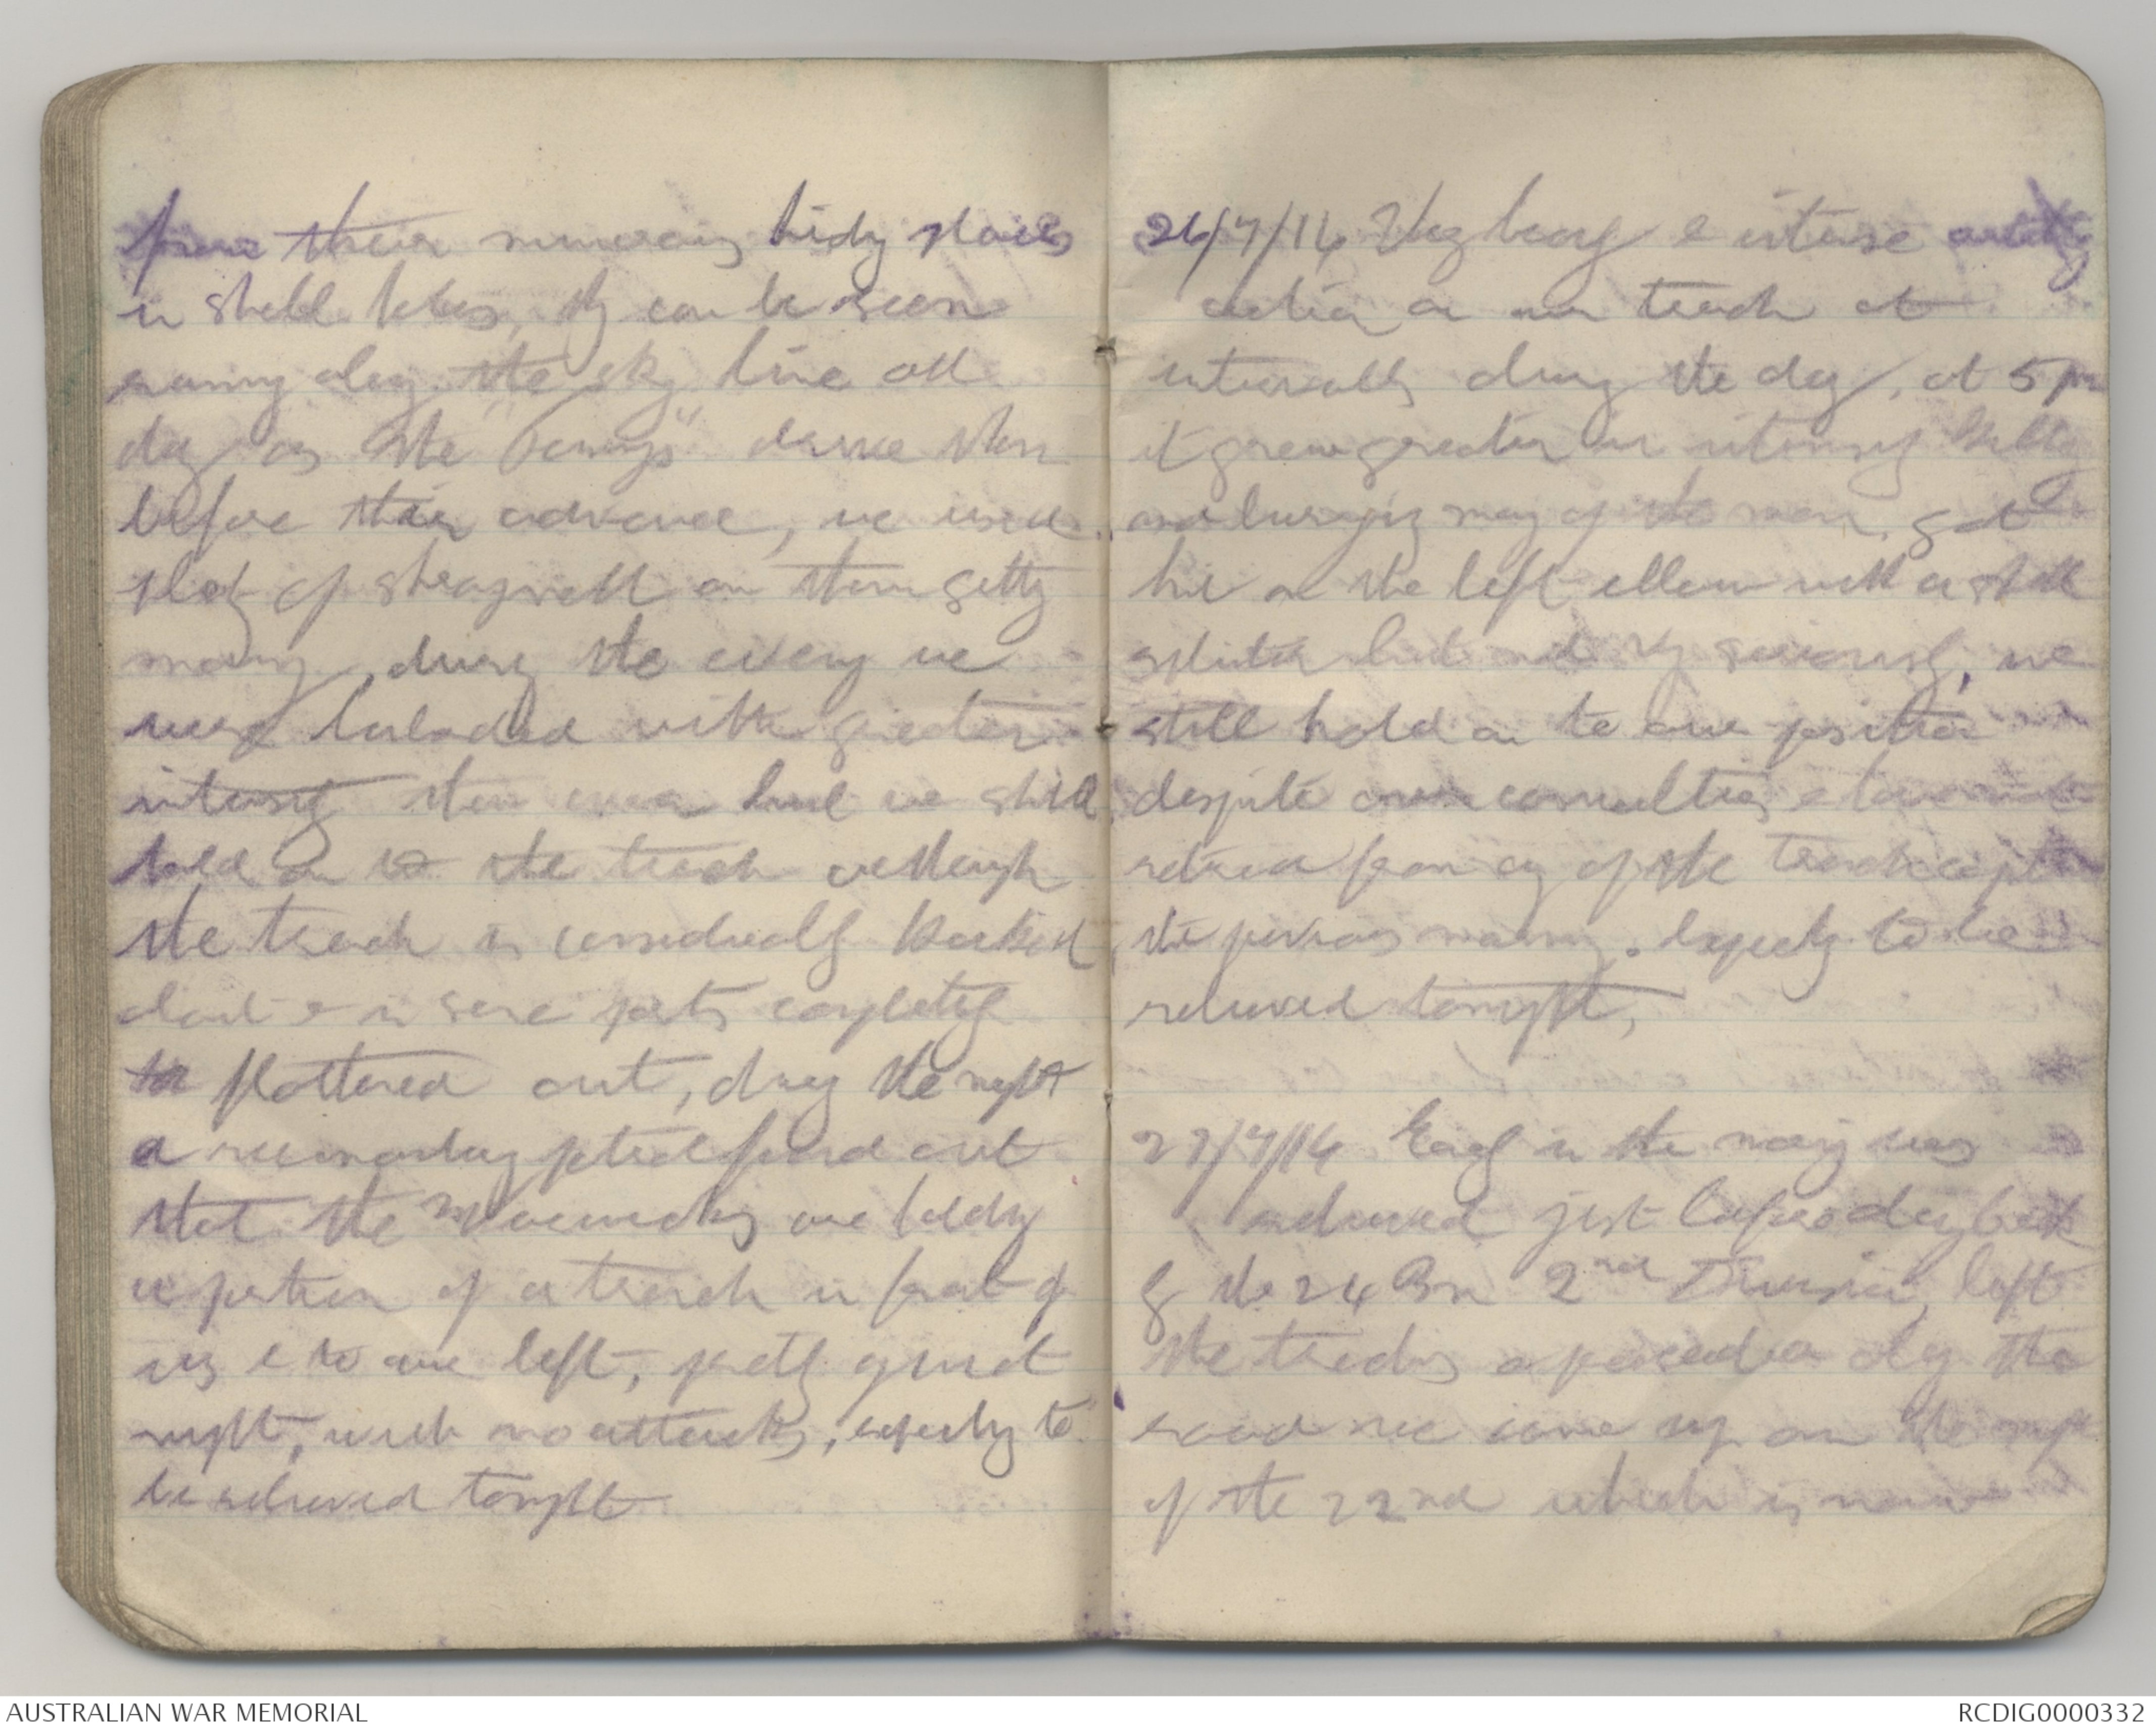 from their numerous hidy places
in shell holes, they can be seen
running along the sky line all
day as the "Tommys" drive them
before their advance, we used
plenty of shrapnell on them getting
many, during the evening we
were bombarded with greater
intensity than ever but we still
hold on to the trench although
the trench is considerably knocked
about & in some parts completely
flattened out, during the night
a reconnoitering patrol found out
that the are holding
a portion of a trench in front of
us & to our left, pretty quiet
night, with no attacks, expecting to
be relieved tonight
26/7/16 Very heavy & intense artillery
action on our trench at
intervals during the day, at 5 pm
it grew greater in intensity killing
and burying many of the men, got
hit on the left elbow with a shell
splinter but not very seriously, we
still hold on to our position
despite our casualties & have not
retired from any of the trench captured
the previous morning. Expecting to be
relieved tonight,
27/7/16 Early in the morning was
relieved just before daybreak
by the 24 Bn 2nd Division, left
the trenches & proceeded along the
road we came up on the night
of the 22nd which is now